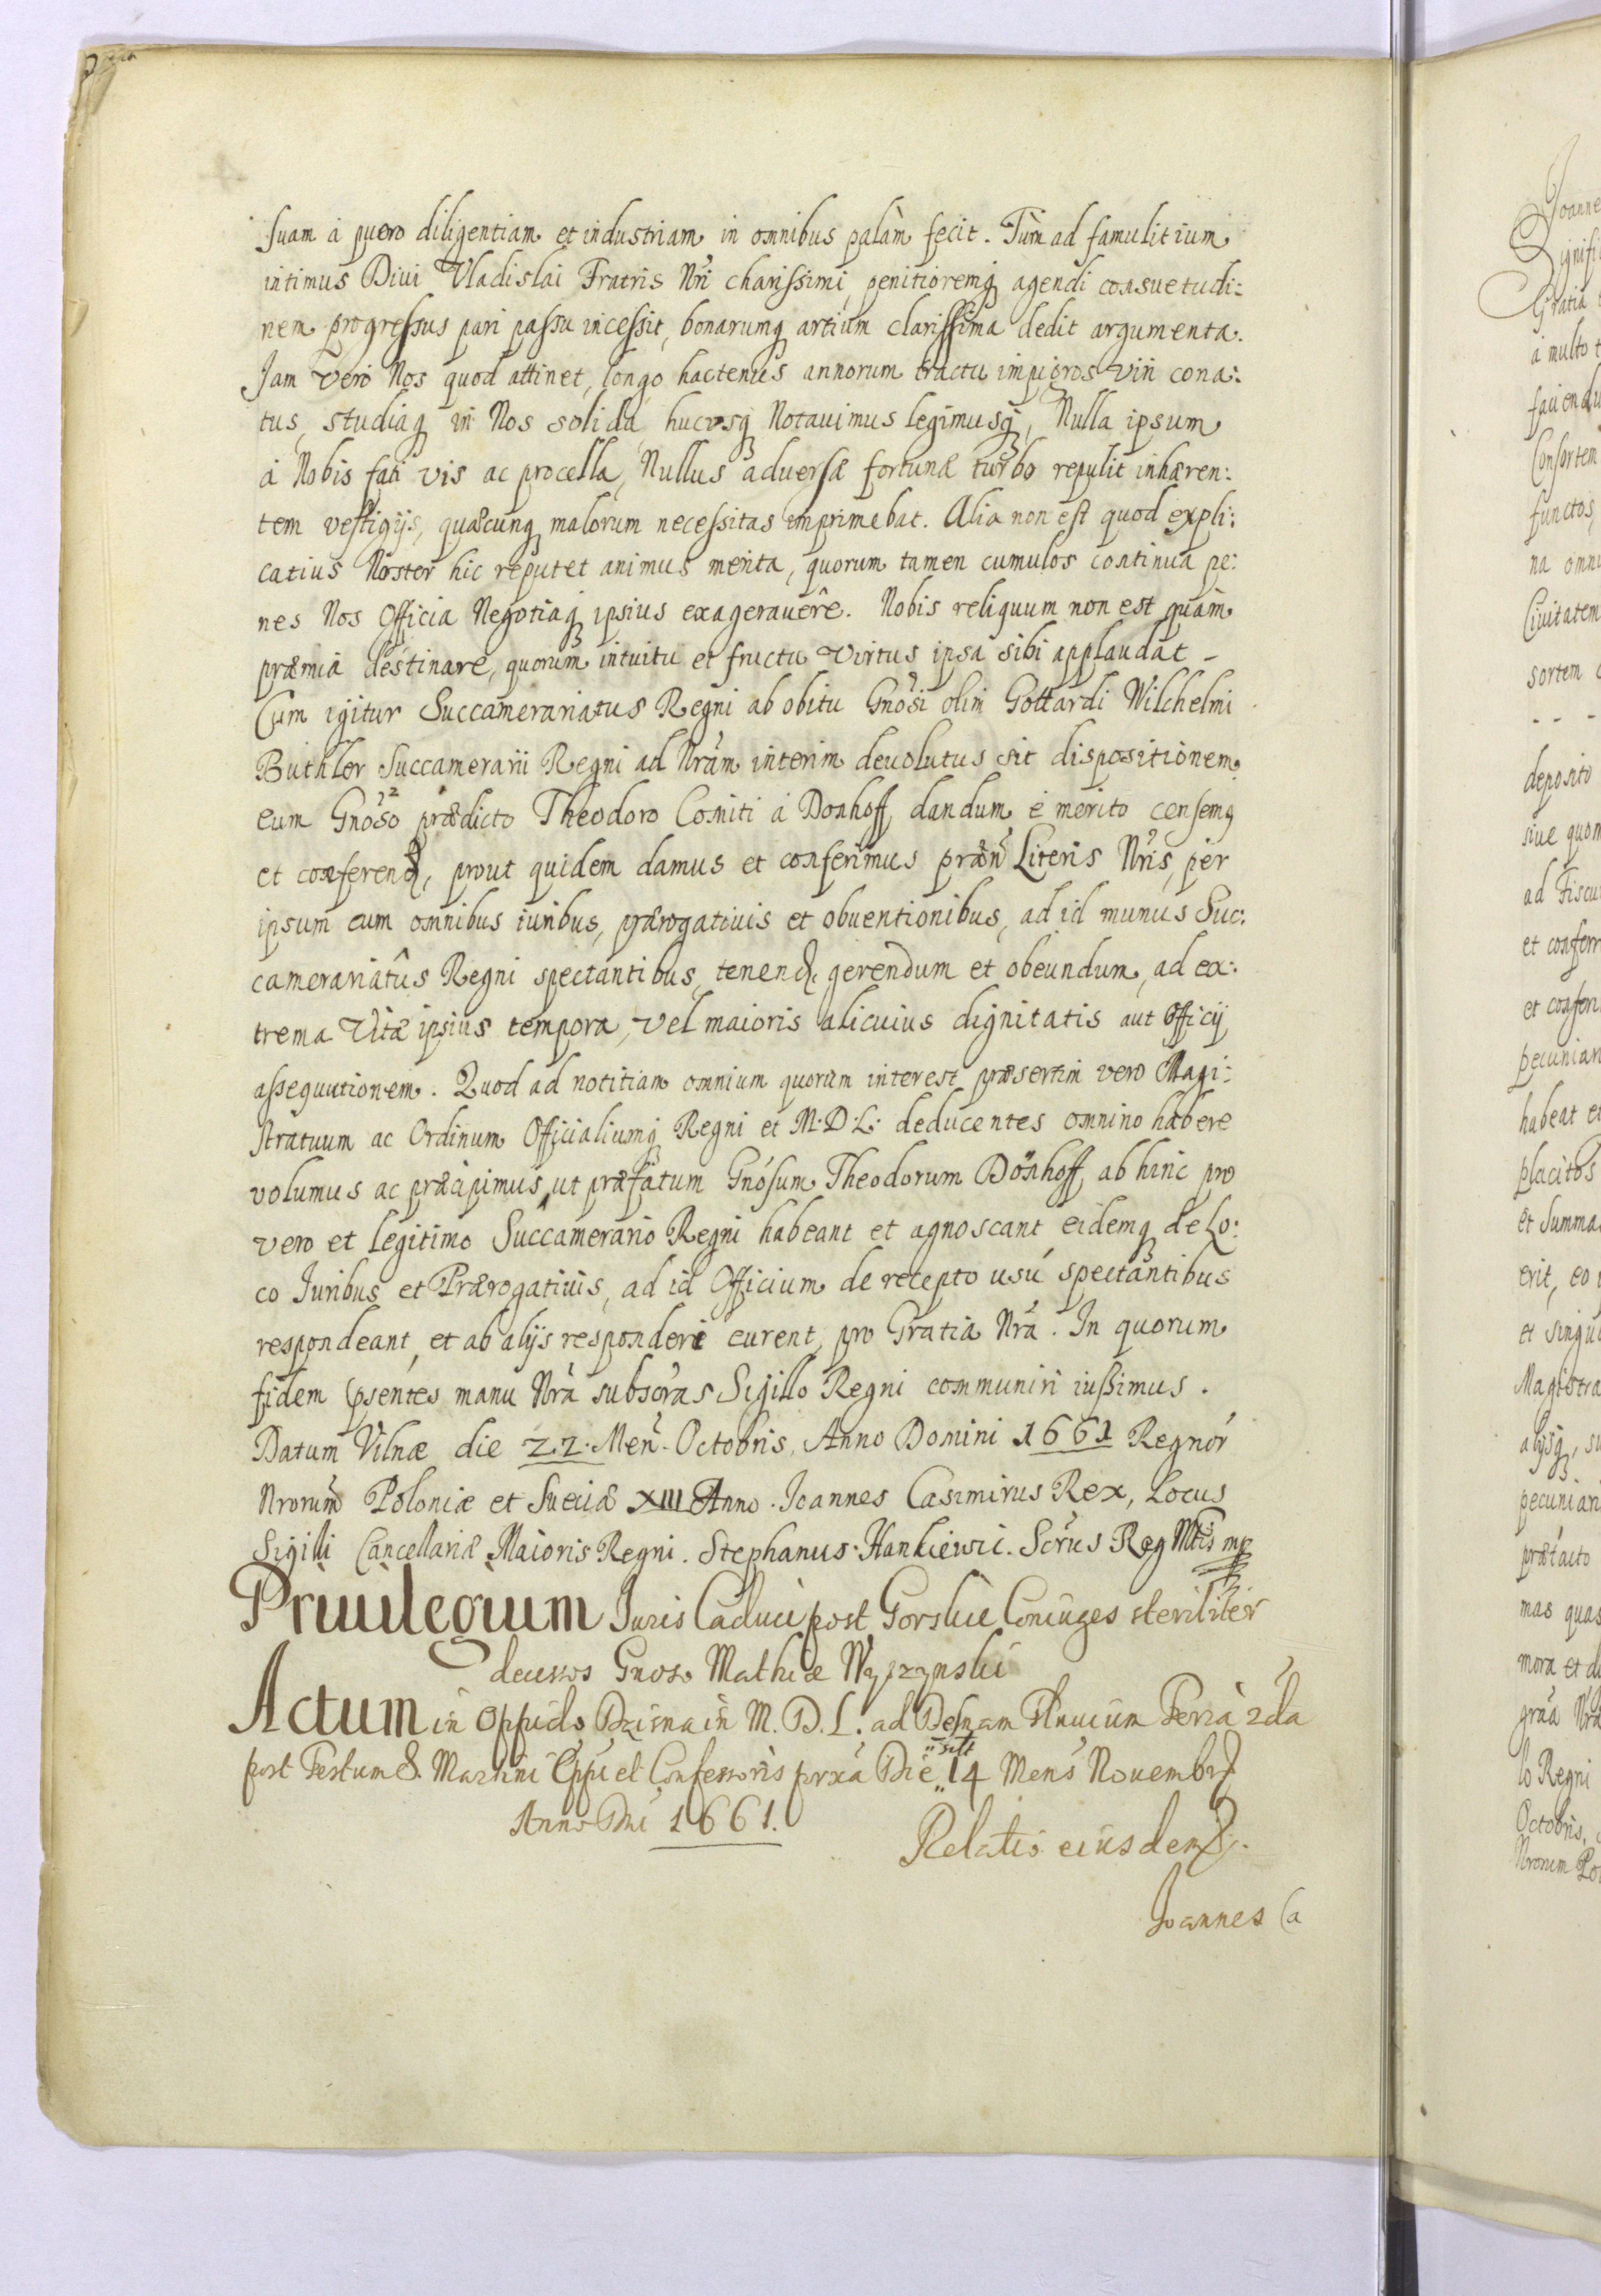 suam à puero diligentiam et industriam in omnibus palàm fecit. Tùm ad famulitium
intimus Diui Vladislai Fratris Nri charissimi, penitioremq agendi consuetudi:
nem progressus pari passu incessit, bonarumq artium clarissima dedit argumenta.
Jam vero Nos quod attinet, longo hactenus annorum tractu impigros viri cona:
tus, studiaq in Nos solida hucusq Notauimus legimusq, Nulla ipsum
à Nobis fati vis ac procella, Nullus aduersæ fortunæ turbo repulit inhæren:
tem vestigijs, quæcunq malorum necessitas imprimebat. Alia non est quod expli:
catius Noster hic reputet animus merita, quorum tamen cumulos continua pe:
nes Nos Officia Negotiaq ipsius exagerauere. Nobis reliquum non est quàm
præmia destinare, quorum intuitu et fructu Virtus ipsa sibi applaudat –
Cum igitur Succamerariatus Regni ab obitu Gnosi olim Gottardi Wilchelmi
Buthler Succamerarii Regni ad Nram interim deuolutus sit dispositionem,
eum Gnoso prædicto Theodoro Comiti à Donhoff dandum è merito censemq
et conferend, prout quidem damus et conferimus præn Literis Nris, per
ipsum cum omnibus iuribus, prærogatiuis et obuentionibus, ad id munus Suc:
camerariatûs Regni spectantibus, tenend, gerendum et obeundum, ad ex:
trema Vitæ ipsius tempora, vel maioris alicuius dignitatis aut Officij
assequutionem. Quod ad notitiam omnium quorum interest præsertim vero Magi:
stratuum ac Ordinum Officialiumq Regni et M. D. L. deducentes omnino habere
volumus ac præcipimus, ut præfatum Gnosum Theodorum Dönhoff, ab hinc pro
vero et legitimo Succamerario Regni habeant et agnoscant eidemq de Lo:
co Juribus et Prærogatiuis, ad id Officium de recepto usu spectantibus
respondeant, et ab alijs responderi curent, pro Gratia Nra. In quorum
fidem psentes manu Nra subscras Sigillo Regni communiri iussimus.
Datum Vilnæ die 22. Men. Octobris, Anno Domini 1661 Regnor
Nrorum Poloniæ et Sueciæ XIII Anno. Joannes Casimirus Rex, Locus
Sigilli Cancellariæ Maioris Regni. Stephanus Hankiewic. Scrus Reg Mtis mp
Priuilegium Juris Caduci post Gorskie Coniuges steriliter
decessos Gnoso Mathiæ Wyrzynski
Actum in Oppido Dzisna in M. D. L. ad Desnam Fluuium Feria 2da
post Festum S. Martini Eppi et Confessoris prxa Die 14 Mens Nouembr
Anno Dni 1661.
Relatio eiusdem
Joannes Ca
Joanne
Signifi
Gratia
à multo t
faciend
Consortem
functos
na omni
Ciuitatem
sortem
- - -
deposito
siue quom
ad Fiscu
et conferr
et conferi
pecuniar
habeat et
placitos
et Summa
erit, eo
et singul
Magistra
alijsq, s
pecuniari
prætacto
mas quas
mora et d
gràa Nra
lo Regni
Octobris,
Nrorum Po